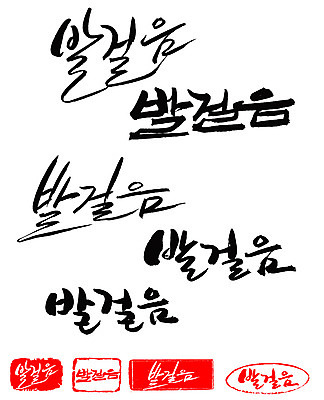 발걸음
발걸음
발걸음
발걸음
발걸음
발걸음 발걸음 발걸음 발걸음